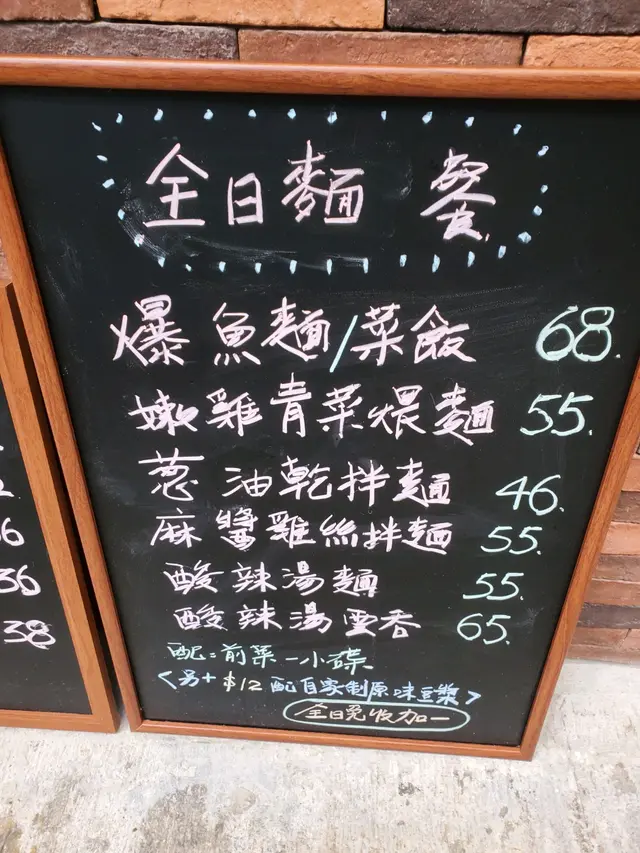 全日麵 餐
爆魚麵/菜飯 68.
嫩雞青菜煨麵 55.
葱油乾拌麵 46.
麻醬雞絲拌麵 55.
酸辣湯麵 55.
酸辣湯雲香 65.
配:前菜一小碟
<另+$12 配自家制原味豆漿>
全日免收加一
2.
36
36
38